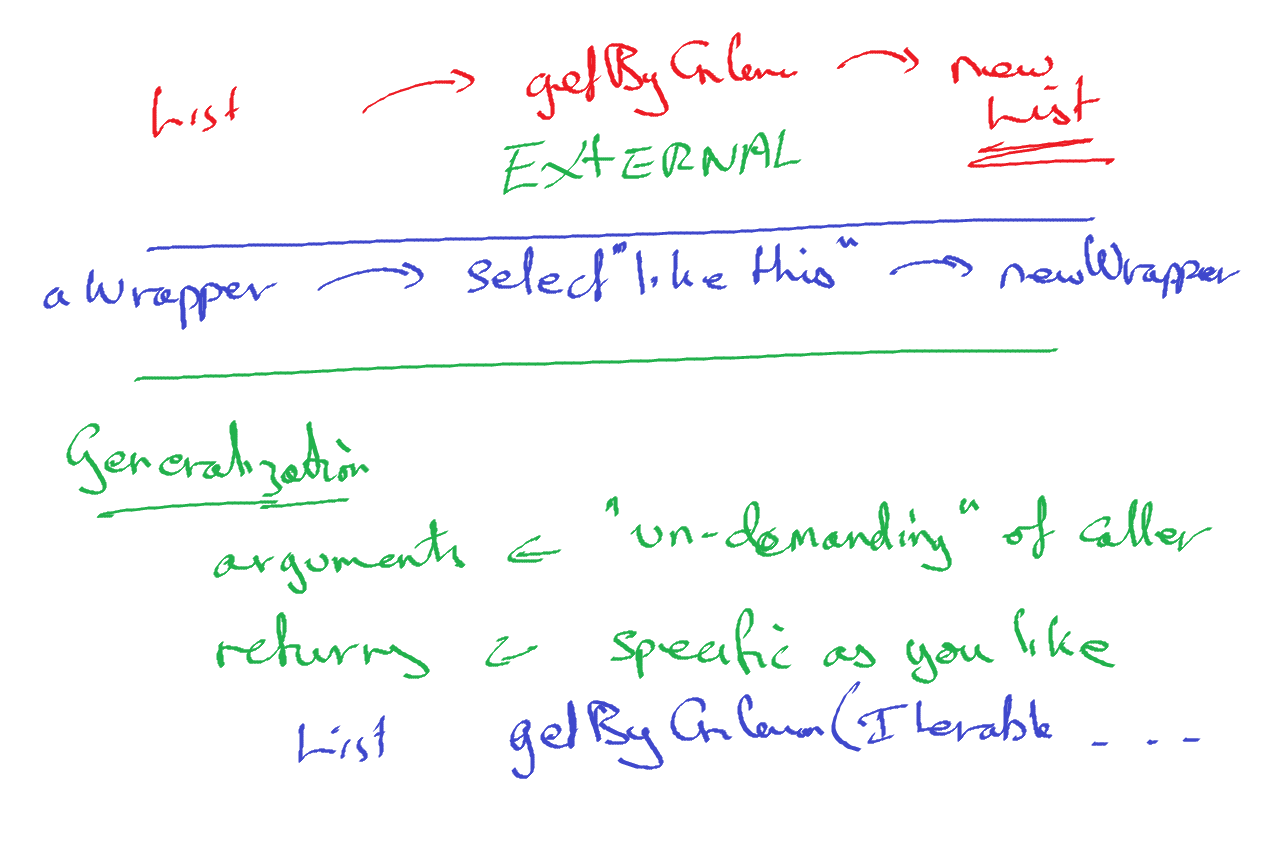 List → getByCriterion → new
List
EXTERNAL
a Wrapper → select "like this" → new Wrapper
Generalization
arguments ← "un-demanding" of caller
returns ← specific as you like
List getByCriterion(Iterable - - -